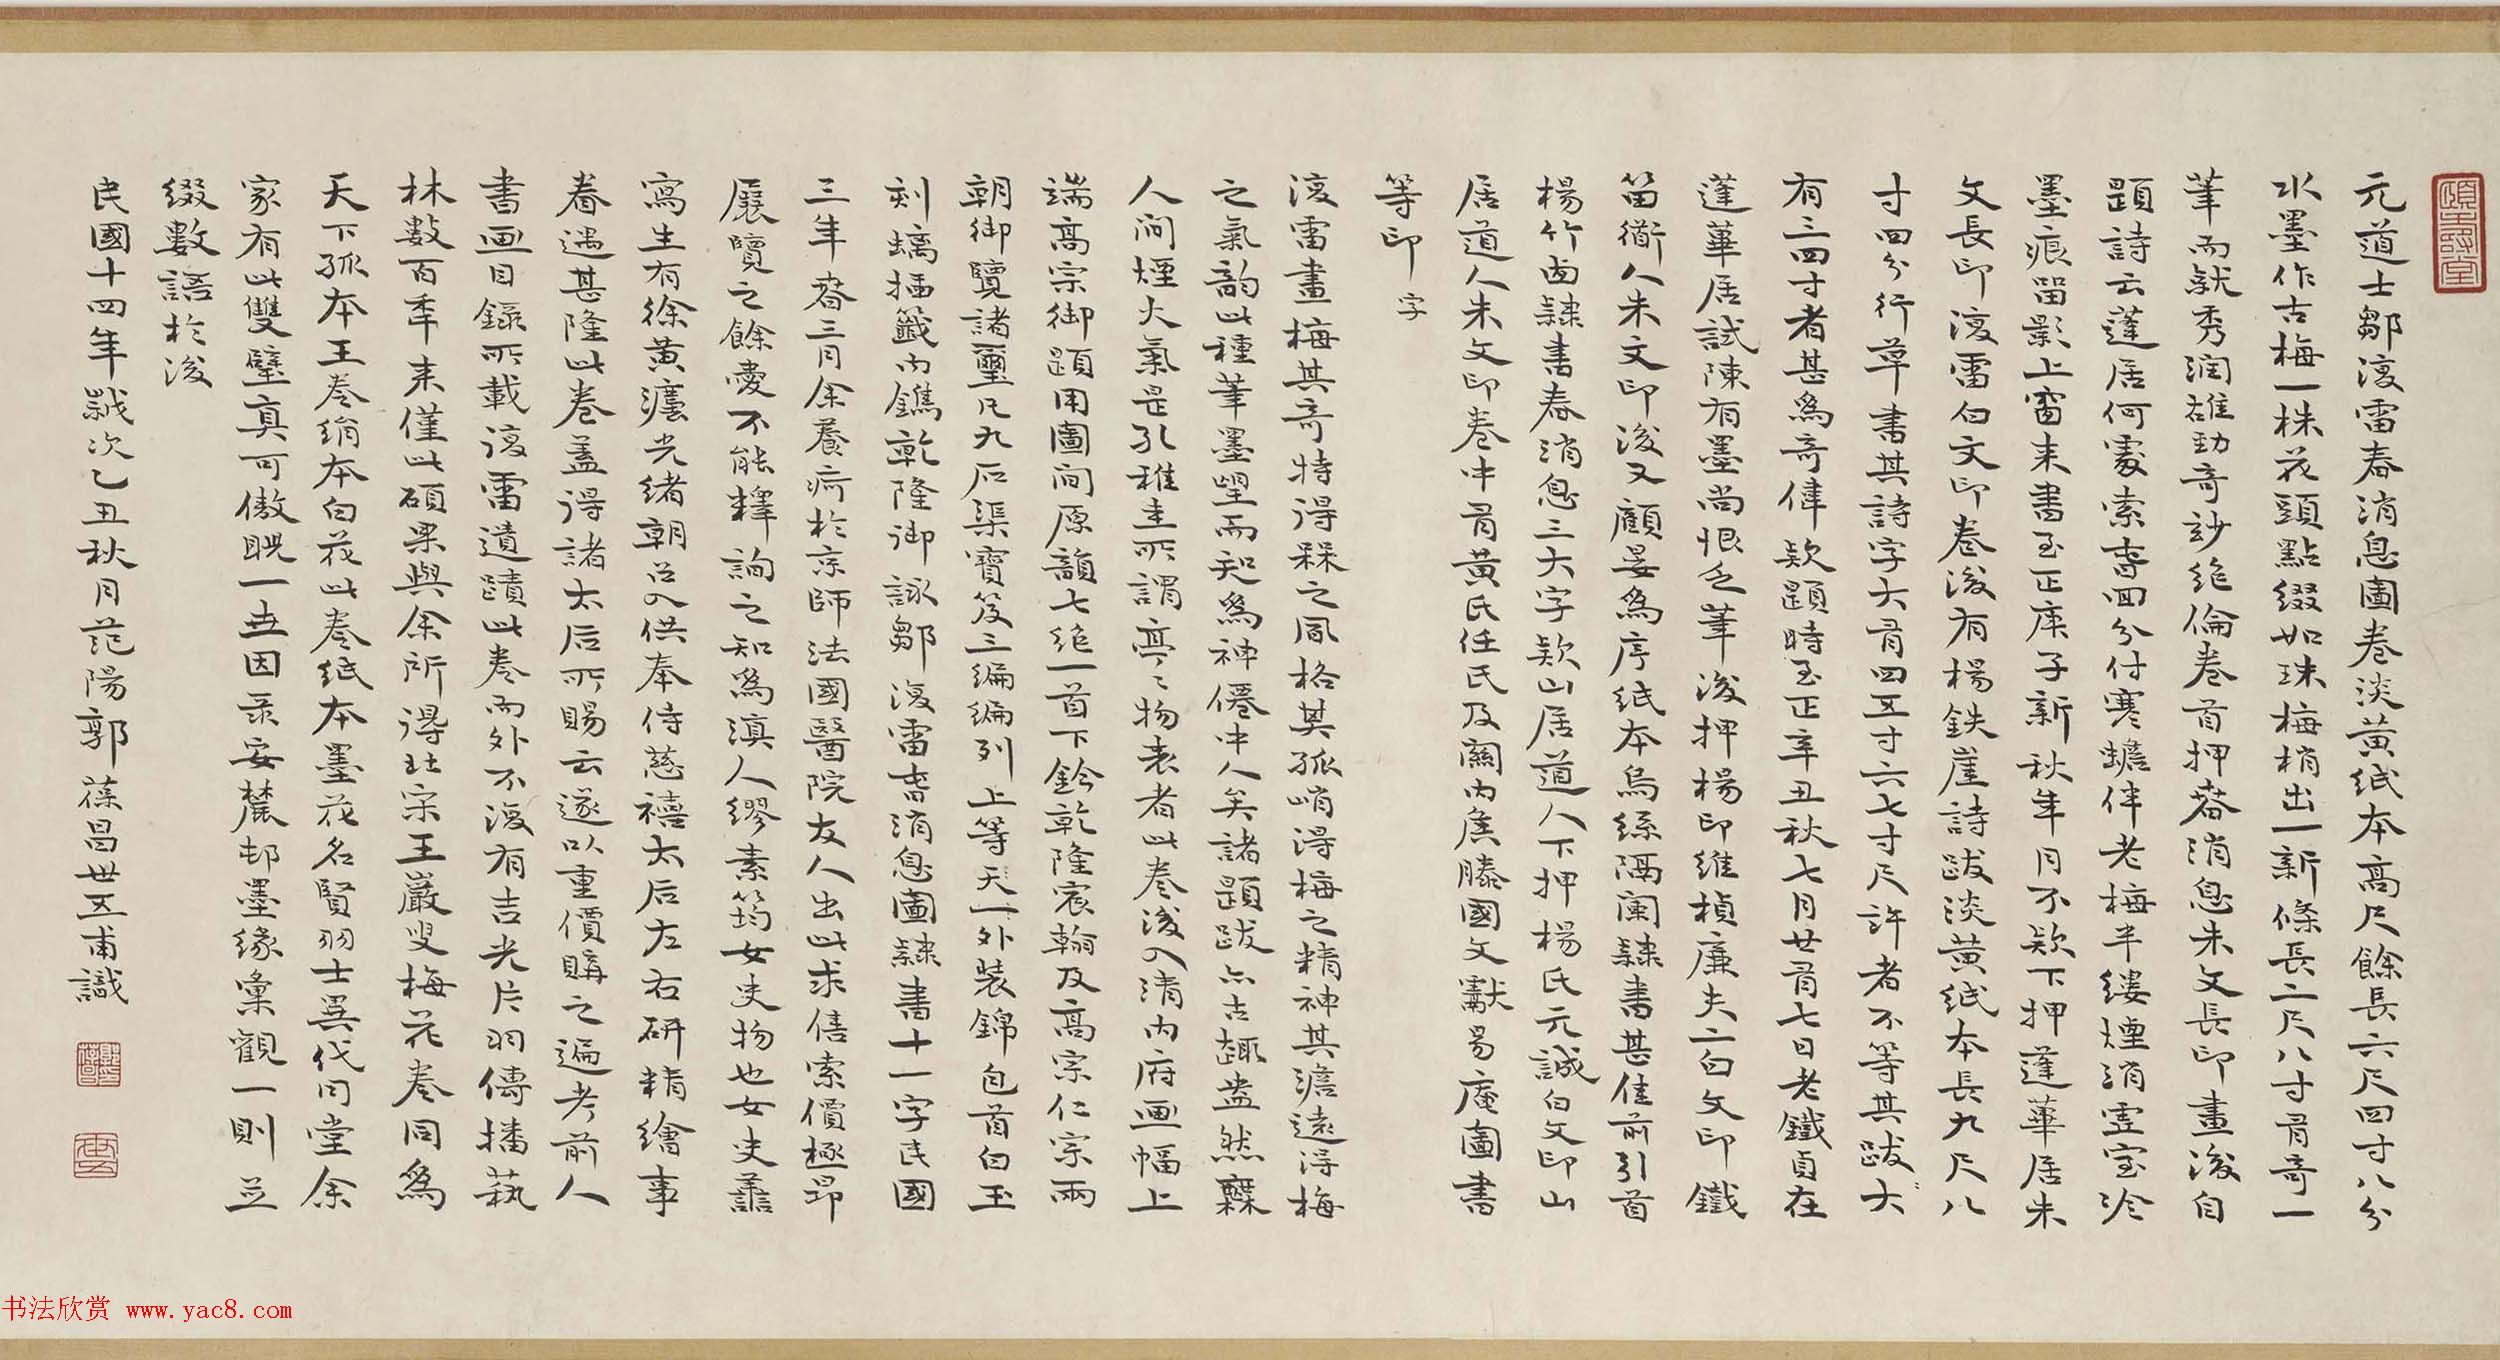 元道士鄒復雷春消息圖卷淡黃紙本高尺餘長六尺四寸八分
水墨作古梅一株花頭點綴如珠梅梢出一新條長二尺八寸有奇一
筆而就秀潤雄勁奇妙絕倫卷首押春消息朱文長印畫後自
題詩云蓬居何處索春回分付寒蟾伴老梅半縷煙消虛室冷
墨痕留影上窗來書至正庚子新秋年月不款下押蓬華居朱
文長印復雷白文印卷後有楊鉄崖詩跋淡黃紙本長九尺八
寸四分行草書其詩字大有四五寸六七寸尺許者不等其跋大
有三四寸者甚為奇偉款題時至正辛丑秋七月廿有七日老鐵貞在
蓬蓽居試陳有墨尚恨乏筆後押楊印維楨廉夫二白文印鐵
笛衜人朱文印後又顧晏為序紙本烏絲隔闌隸書甚佳前引首
楊竹卤隸書春消息三大字款山居道人下押楊氏元誠白文印山
居道人朱文印卷中有黃氏任氏及關內侯滕國文獻易庵圖書
字
等印
復雷畫梅其奇特得槑之風格其孤峭得梅之精神其澹遠得梅
之氣韵此種筆墨望而知為神僊中人矣諸題跋亦古趣盎然糜
人間煙火氣是孔稚圭所謂亭亭物表者此卷後入清內府画幅上
端高宗御題用圖間原韻七絕一首下鈐乾隆宸翰及高宗仁宗兩
朝御覽諸璽凡九石渠寶笈三編編列上等天一外裝錦包首白玉
刻螭插籤內鐫乾隆御詠鄒復雷春消息圖隸書十一字民國
三年春三月余養疴於京師法國醫院友人出此求售索價極昂
展覽之餘愛不能釋詢之知為滇人繆素筠女史物也女史善
寫生有徐黃灋光緒朝召入供奉侍慈禧太后左右研精繪事
眷遇甚隆此卷蓋得諸太后所賜云遂以重價購之遍考前人
書画目錄所載復雷遺蹟此卷而外不復有吉光片羽傳播藝
林數百年來僅此碩果與余所得北宋王巖叟梅花卷同為
天下孤本王卷絹本白花此卷紙本墨花名賢羽士異代同堂余
家有此雙璧真可傲睨一世因录安麓邨墨緣彙觀一則並
綴數語於後
民國十四年歲次乙丑秋月范陽郭葆昌世五甫識
书法欣赏 www.yac8.com